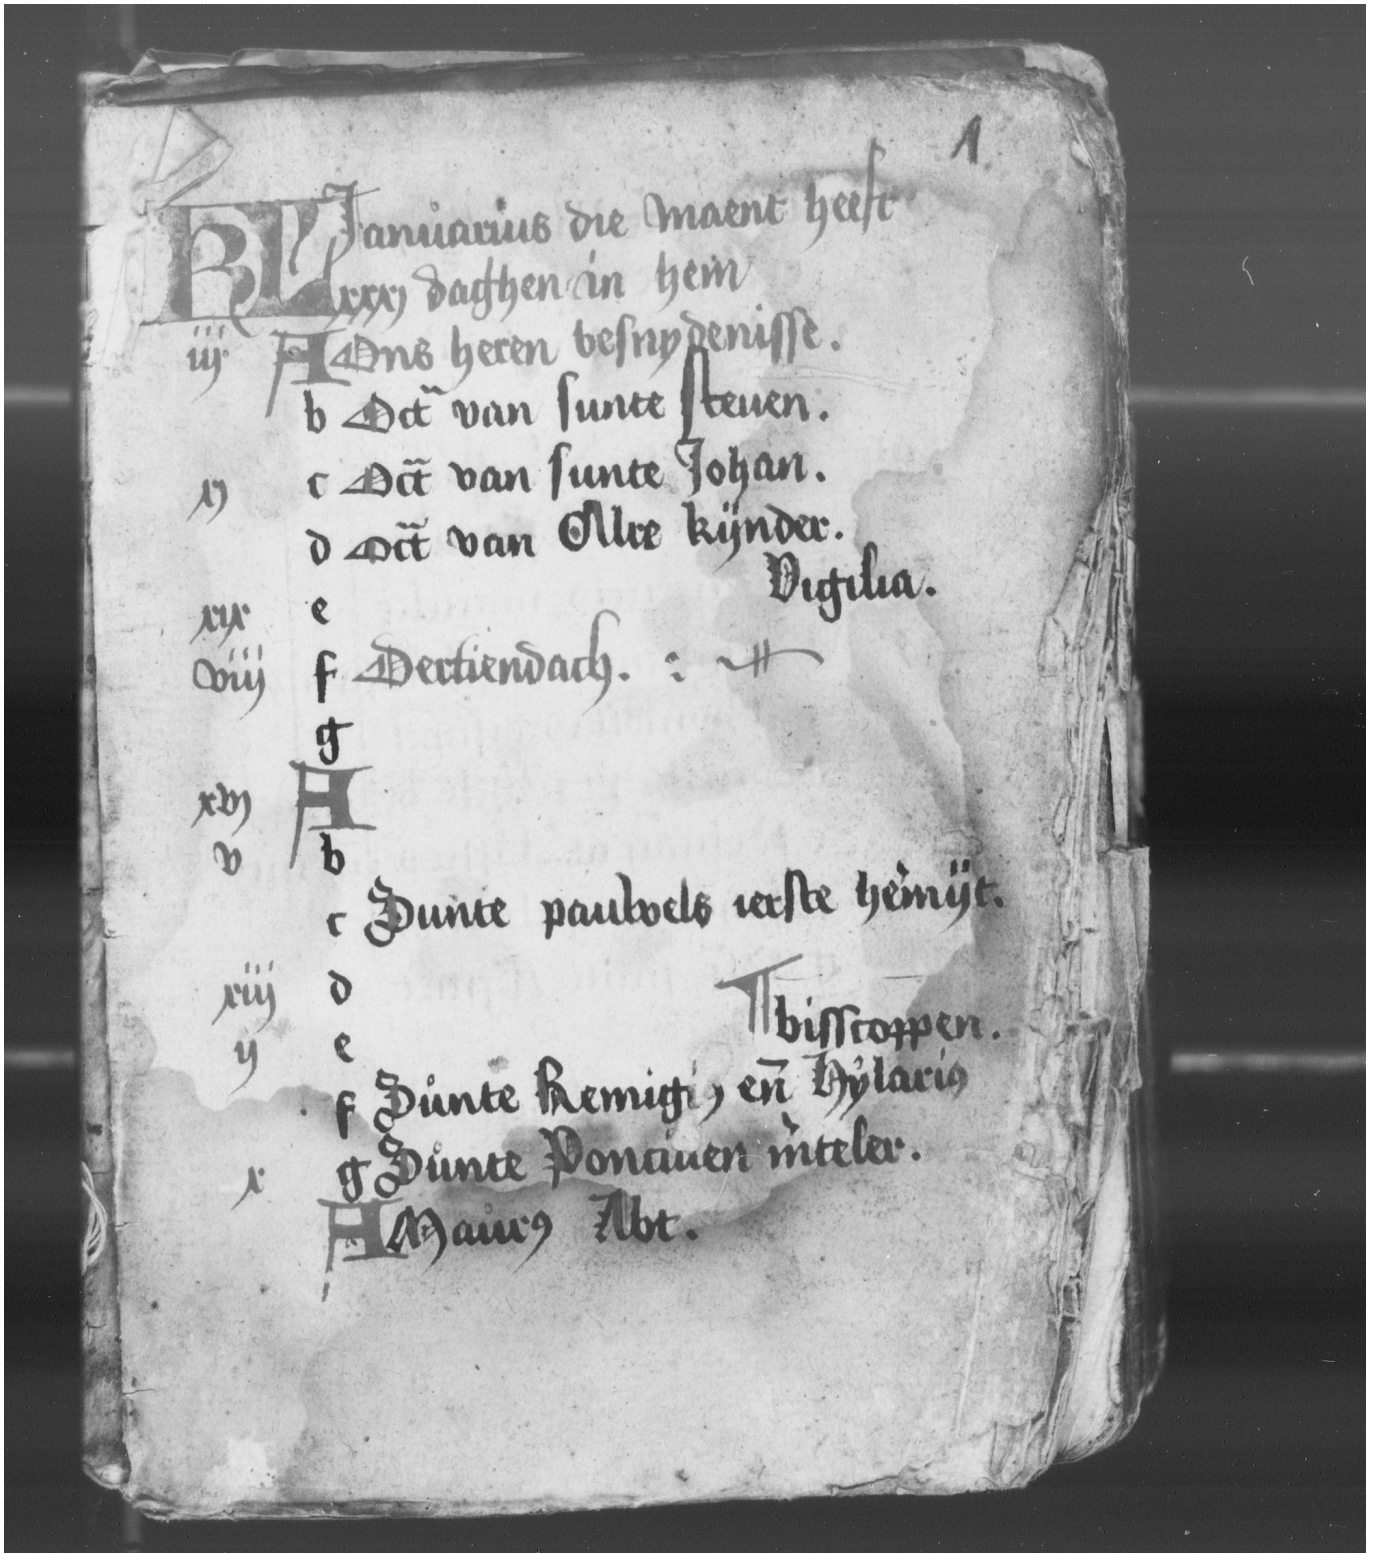 1
KL Januarius die maent heeft
xxxj daghen in hem
iij A Ons heren besnydenisse.
b Oct̃ van sunte steuen.
xj c Oct̃ van sunte Johan.
d Oct̃ van Alre kÿnder.
Vigilia.
xix e
viij f Dertiendach.
g
xvj A
v b
c Sunte pauwels ierste hemijt.
xiij d
ij e bisscoppen.
f Sunte Remigiꝰ en̄ Hylariꝰ
x g Sunte Ponciuen m̄teler.
A Maurꝰ Abt.